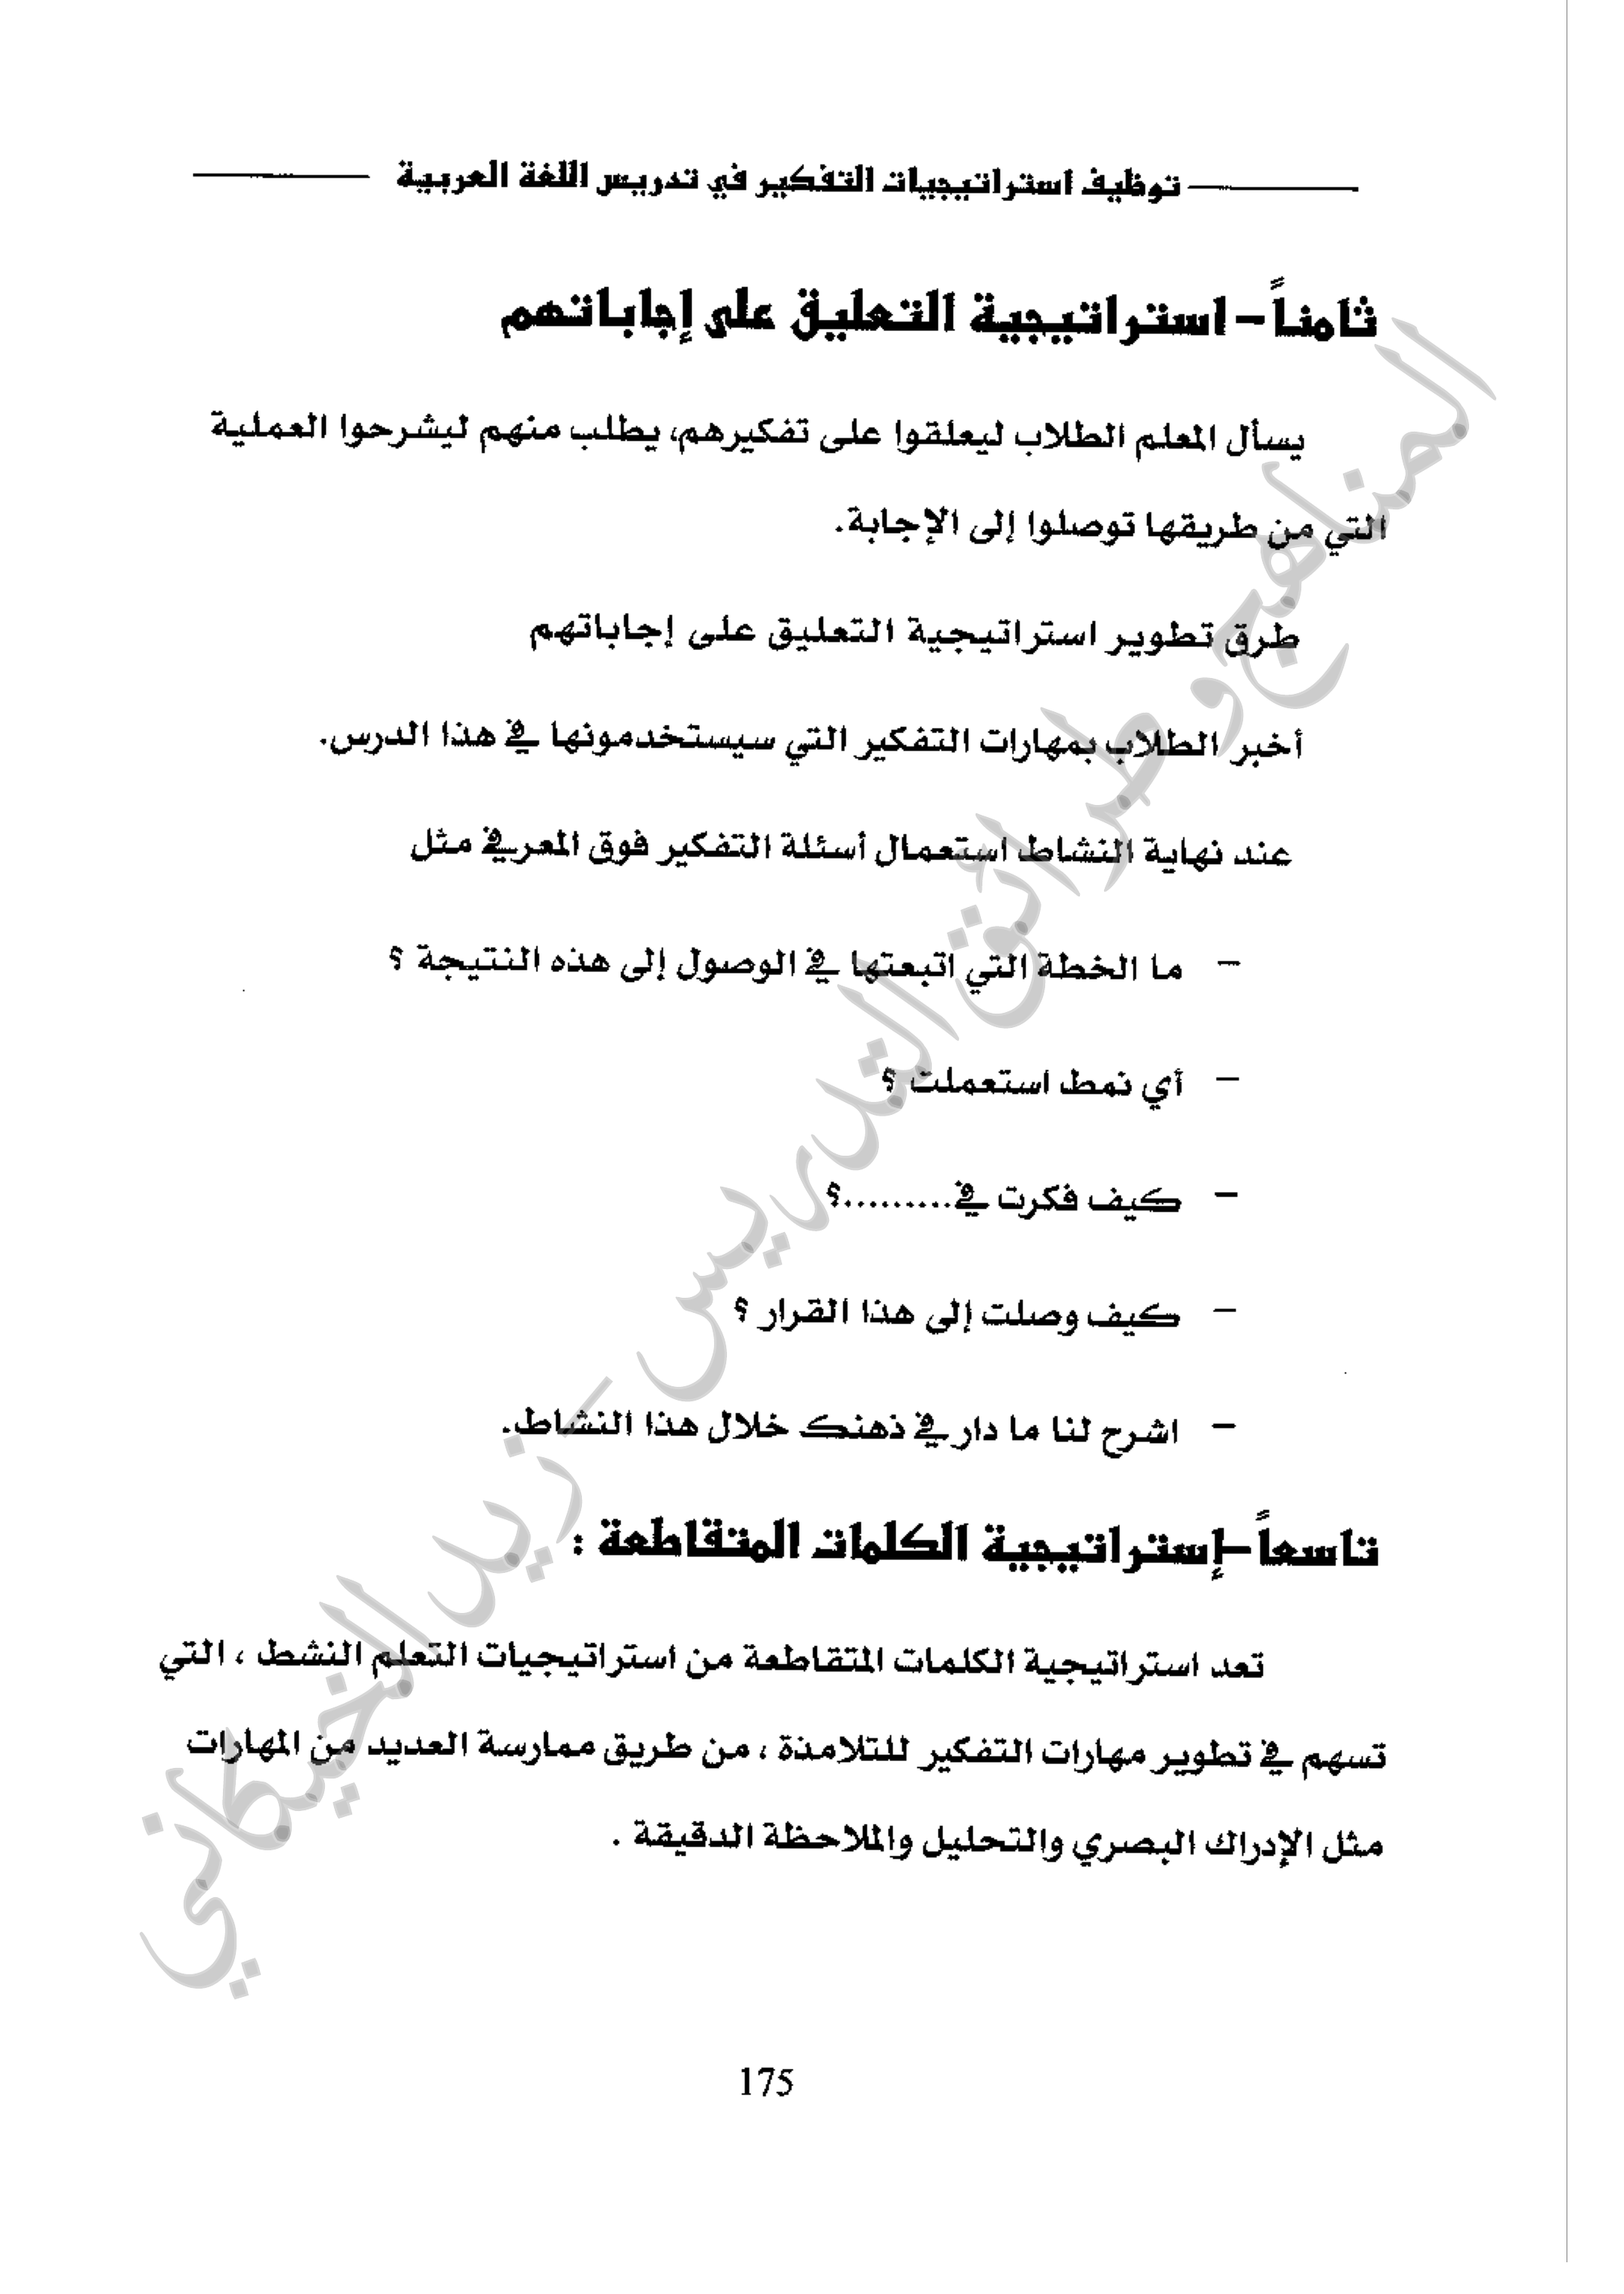 توظيف استراتيجيات التفكير في تدريس اللغة العربية
ثامناً – استراتيجية التعليق على إجاباتهم
يسأل المعلم الطلاب ليعلقوا على تفكيرهم، يطلب منهم ليشرحوا العملية
التي من طريقها توصلوا إلى الإجابة.
طرق تطوير استراتيجية التعليق على إجاباتهم
أخبر الطلاب بمهارات التفكير التي سيستخدمونها في هذا الدرس.
عند نهاية النشاط استعمال أسئلة التفكير فوق المعرفي مثل
– ما الخطة التي اتبعتها في الوصول إلى هذه النتيجة ؟
– أي نمط استعملت ؟
– كيف فكرت في.........؟
– كيف وصلت إلى هذا القرار ؟
– اشرح لنا ما دار في ذهنك خلال هذا النشاط.
تاسعاً–إستراتيجية الكلمات المتقاطعة :
تعد استراتيجية الكلمات المتقاطعة من استراتيجيات التعلم النشط ، التي
تسهم في تطوير مهارات التفكير للتلامذة ، من طريق ممارسة العديد من المهارات
مثل الإدراك البصري والتحليل والملاحظة الدقيقة .
175
المناهج وطرائق التدريس – زيد الخيكاني